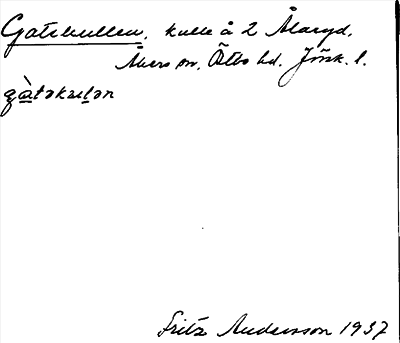 Gatekullen, kulle å 2 Ålaryd,
Åkers sn, Östbo hd. Jönk. l.
gàtəkulən
Fritz Andersson 1937